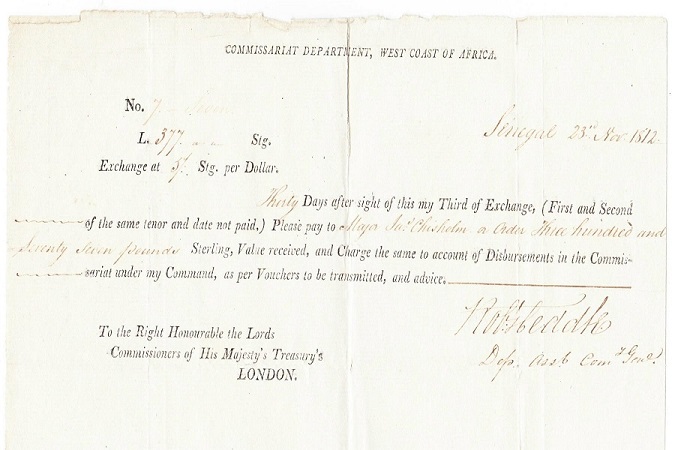 COMMISSARIAT DEPARTMENT, WEST COAST OF AFRICA.
No. 7 Seven
Senegal 23rd Nov. 1812
L. 377 Stg.
Exchange at Stg. per Dollar.
Thirty Days after sight of this my Third of Exchange, (First and Second
of the same tenor and date not paid.) Please pay to Major Jas. Chisholm a Order Three hundred and
Seventy Seven pounds Sterling, Value received, and Charge the same to account of Disbursements in the Commis-
sariat under my Command, as per Vouchers to be transmitted, and advice.
Dep. Asst Comy Genl.
To the Right Honourable the Lords
Commissioners of His Majesty's Treasury's
LONDON.